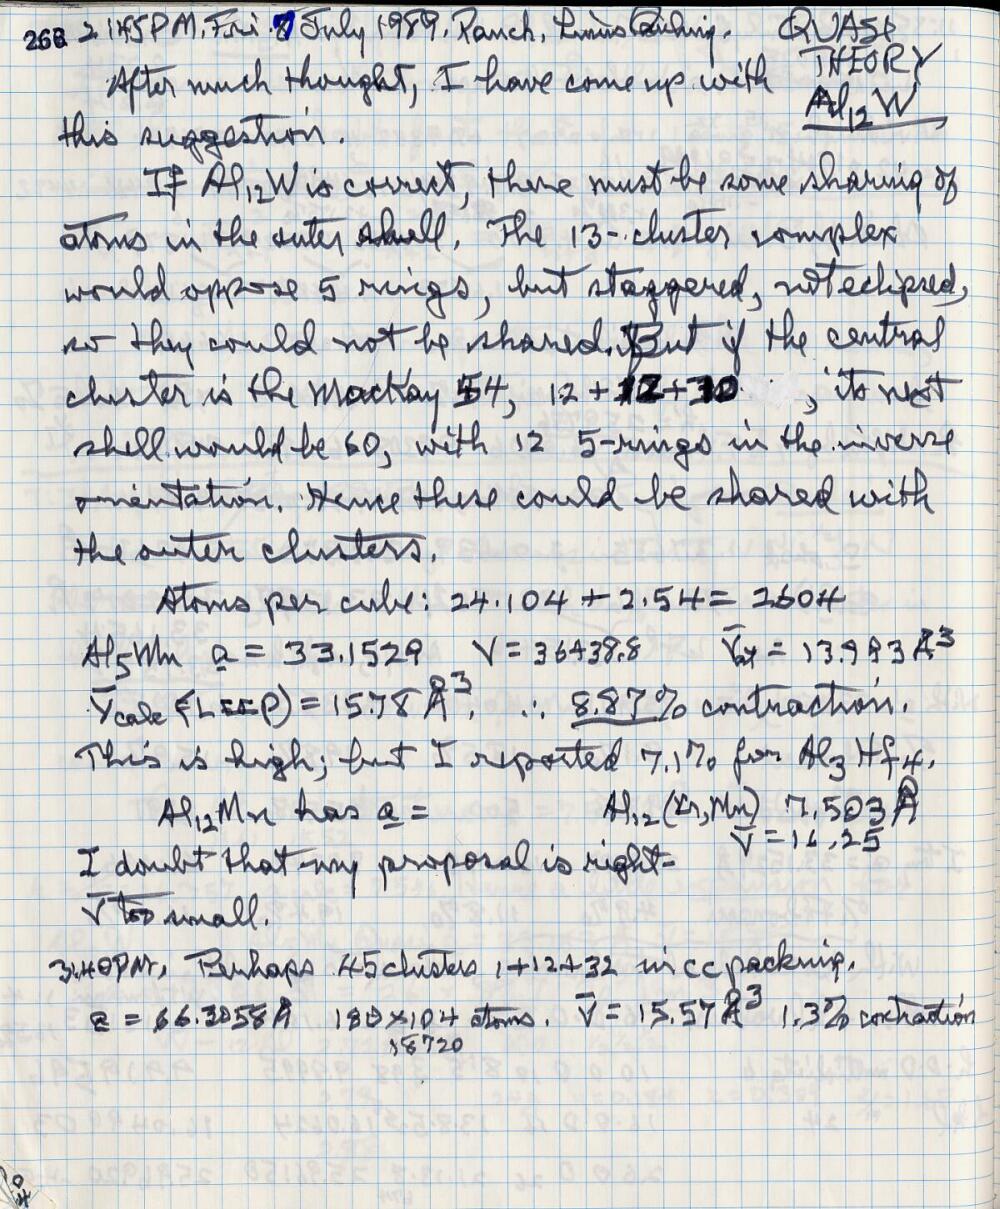 268 2:45PM, Fri. 7 July 1989, Ranch, Linus Pauling. QUASI
THEORY
Al12W
After much thought, I have come up with
this suggestion.
If Al12W is correct, there must be some sharing of
atoms in the outer shell. The 13-cluster complex
would oppose 5 rings, but staggered, not eclipsed,
so they could not be shared. But if the central
cluster is the Mackay 54, 12 + 12 + 30, its next
shell would be 60, with 12 5-rings in the inverse
orientation. Hence these could be shared with
the outer clusters.
Atoms per cube: 24·104 + 2·54 = 2604
Al5Mn a = 33.1529 V = 36438.8 V̄ex = 13.993 Å3
V̄calc (FLEEP) = 15.78 Å3. ∴ 8.87% contraction.
This is high; but I reported 7.1% for Al3Hf4.
Al12Mn has a = Al12(Cr,Mn) 7.503Å
V̄ = 16.25
I doubt that my proposal is right-
V̄ too small.
3:40PM. Perhaps 45 clusters 1+12+32 in ccpacking.
a = 66.3058Å 180×104 atoms. V̄ = 15.57Å3 1.3% contraction
18720